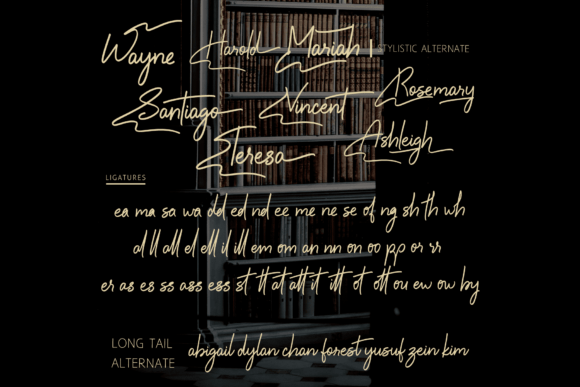 Wayne Harold Mariah
STYLISTIC ALTERNATE
Santiago Vincent Rosemary
Teresa Ashleigh
LIGATURES
ea ma sa wa dd ed nd ee me ne se of ng sh th wh
al ll all el ell il ill em om an nn on oo pp or rr
er as es ss ass ess st tt at att it itt ot ott ou ew ow by
LONG TAIL
ALTERNATE
abigail dylan chan forest yusuf zein kim